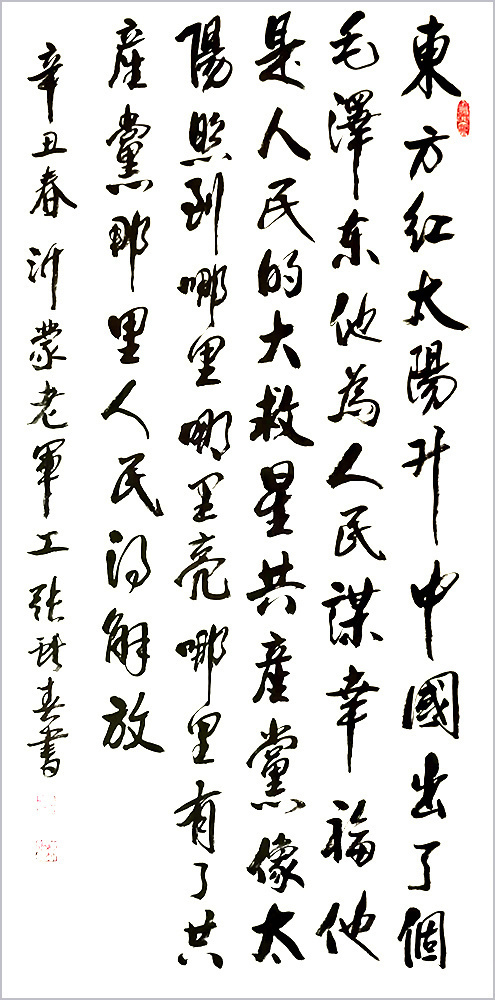 東方红太陽升中國出了個
毛澤东他為人民謀幸福他
是人民的大救星共産黨像太
陽照到哪里哪里亮哪里有了共
産黨那里人民得解放
辛丑春沂蒙老軍工張春書